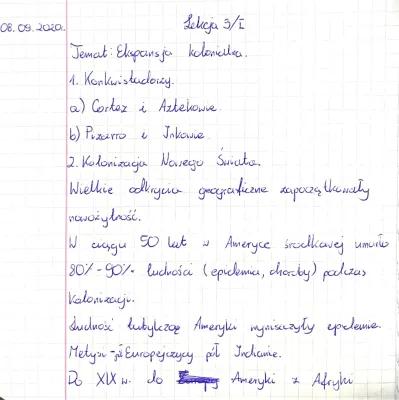 08.09.2020. Lekcja 3/I
Temat: Ekspansja kolonialna.
1. Konkwistadorzy.
a) Cortez i Aztekowie
b) Pizarro i Inkowie
2. Kolonizacja Nowego Świata.
Wielkie odkrycia geograficzne zapoczątkowały
nowożytność.
W ciągu 50 lat w Ameryce środkowej umarło
80%-90% ludności (epidemia, choroby) podczas
kolonizacji.
Ludność tubylczą Ameryki wyniszczyły epidemie.
Metysi - pół Europejczycy pół Indianie.
Do XIX w. do Ameryki z Afryki